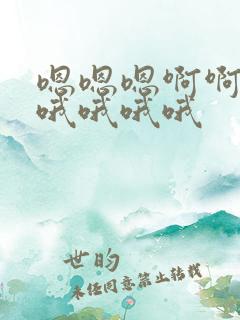 嗯嗯嗯啊啊
哦哦哦哦
世的
未经同意禁止转载